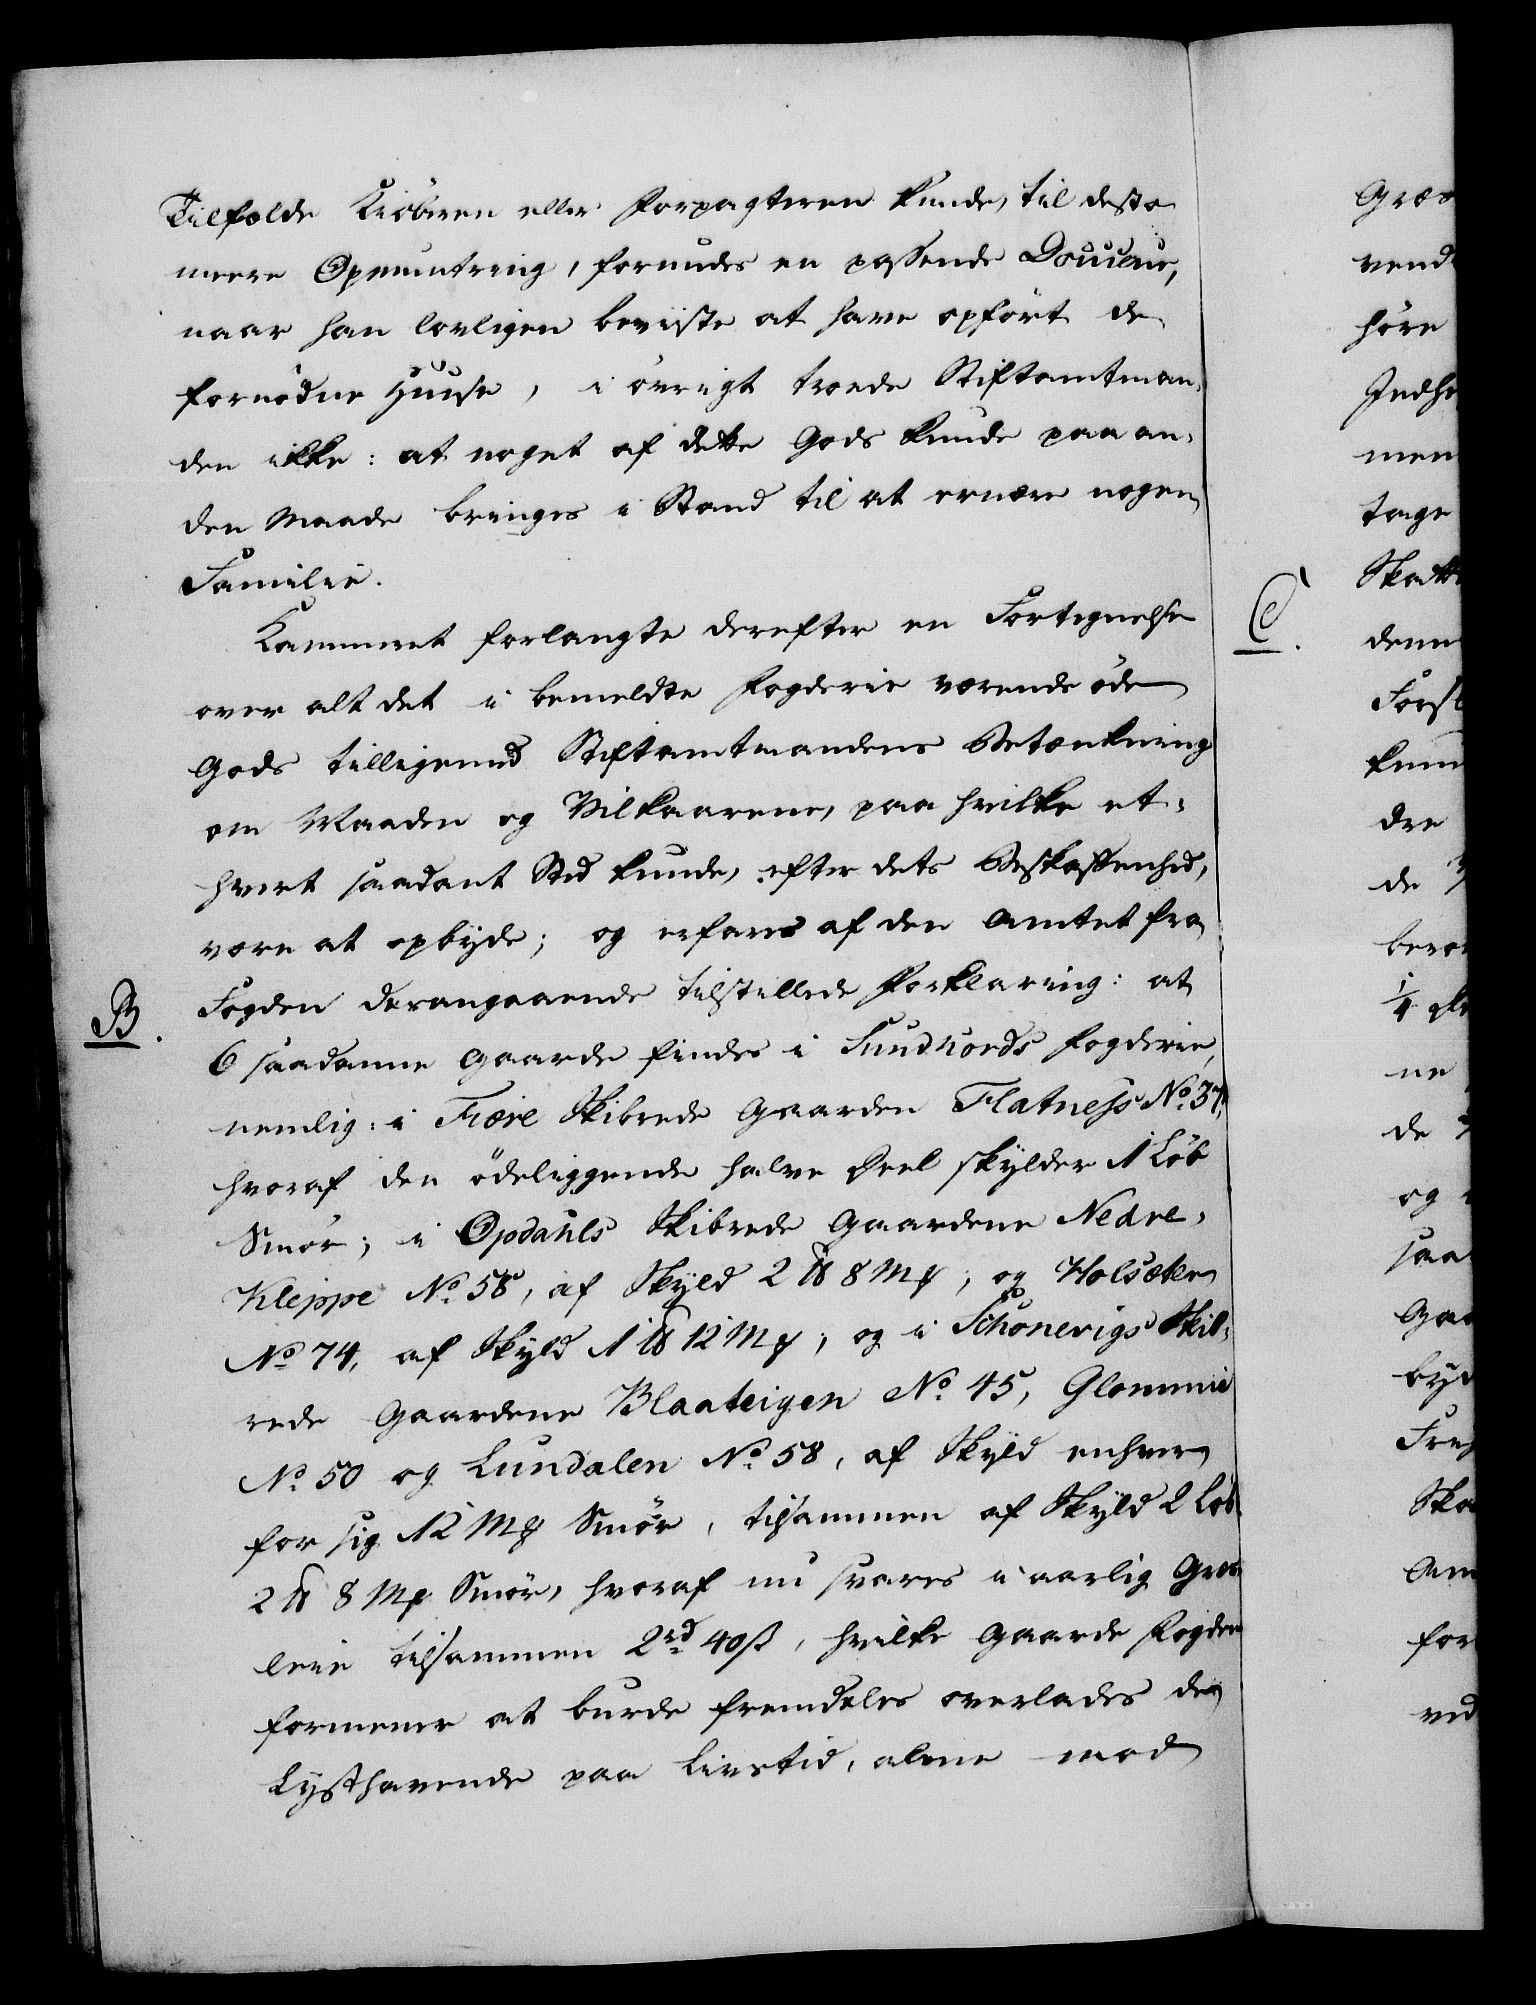 Tilfælde Kiöberen eller Forpagteren kunde, til desto
meere Opmuntring, forundes en passende Douceur,
naar han lovligen beviiste at have opfört de
fornödne Huuse, i övrigt troede Stiftamtman-
den ikke: at noget af dette Gods kunde paa an-
den Maade bringes i Stand til at ernære nogen
Familie.
Kammeret forlangte derefter en Fortegnelse
over alt det i bemeldte Fogderie værende öde
Gods tilligemed Stiftamtmandens Betænkning
om Maaden og Vilkaarene, paa hvilke et-
hvert saadant Sted kunde, efter dets Beskaffenhed,
være at opbyde; og erfares af den Amtet fra
B. Fogden derangaaende tilstillede Forklaring: at
6 saadanne Gaarde findes i Sundhords Fogderie,
nemlig: i Fiære Skibrede Gaarden Flatness No. 37,
hvoraf den ödeliggende halve Deel skylder 1 Löb
Smör; i Opdahls Skibrede Gaardene Nedre-
Kleppe No. 58, af Skyld 2 ℔ 8 Mk; og Holsæker
No. 74, af Skyld 1 ℔ 12 Mk; og i Schönevigs Skib-
rede Gaardene Blaateigen No. 45, Glommie
No. 50 og Lundalen No. 58, af Skyld enhver
for sig 12 Mk Smör, tilsammen af Skyld 2 Löb
2 ℔ 8 Mk Smör, hvoraf nu svares i aarlig Græs-
leie tilsammen 2 rd 40 ß, hvilke Gaarde Fogden
formener at burde fremdeles overlades de
Lysthavende paa Livstid, alene mod
Græs
vend
höre
Indhe
men
tage
Skatte
C. denne
Forsl
kun
der
de
beroe
1/4
ne
de
og
saa
Gaa
byd
Freg
Ska
Am
for
ved